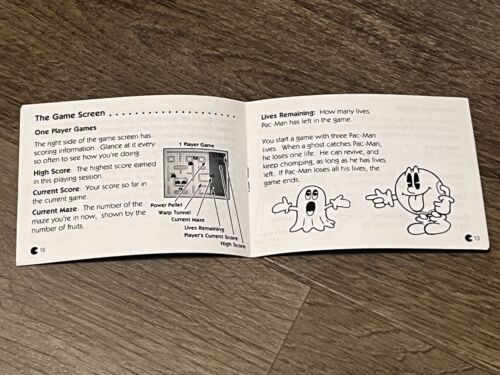 The Game Screen . . . . . . . . . . . . . . . . . . . .
One Player Games
The right side of the game screen has
scoring information. Glance at it every
so often to see how you're doing.
High Score: The highest score earned
in this playing session.
Current Score: Your score so far in
the current game.
Current Maze: The number of the
maze you're in now, shown by the
number of fruits.
1 Player Game
Power Pellet
Warp Tunnel
Current Maze
Lives Remaining
Player's Current Score
High Score
12
Lives Remaining: How many lives
Pac-Man has left in the game.
You start a game with three Pac-Man
lives. When a ghost catches Pac-Man,
he loses one life. He can revive, and
keep chomping, as long as he has lives
left. If Pac-Man loses all his lives, the
game ends.
13